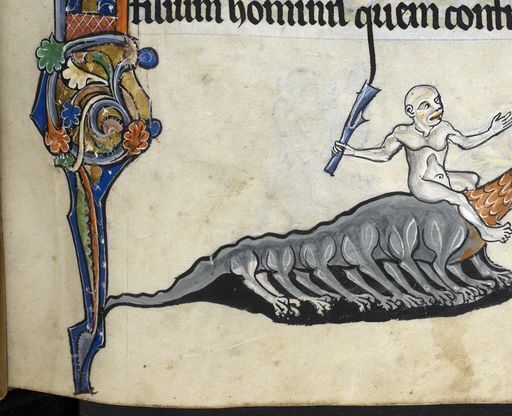 filium hominis quem cont